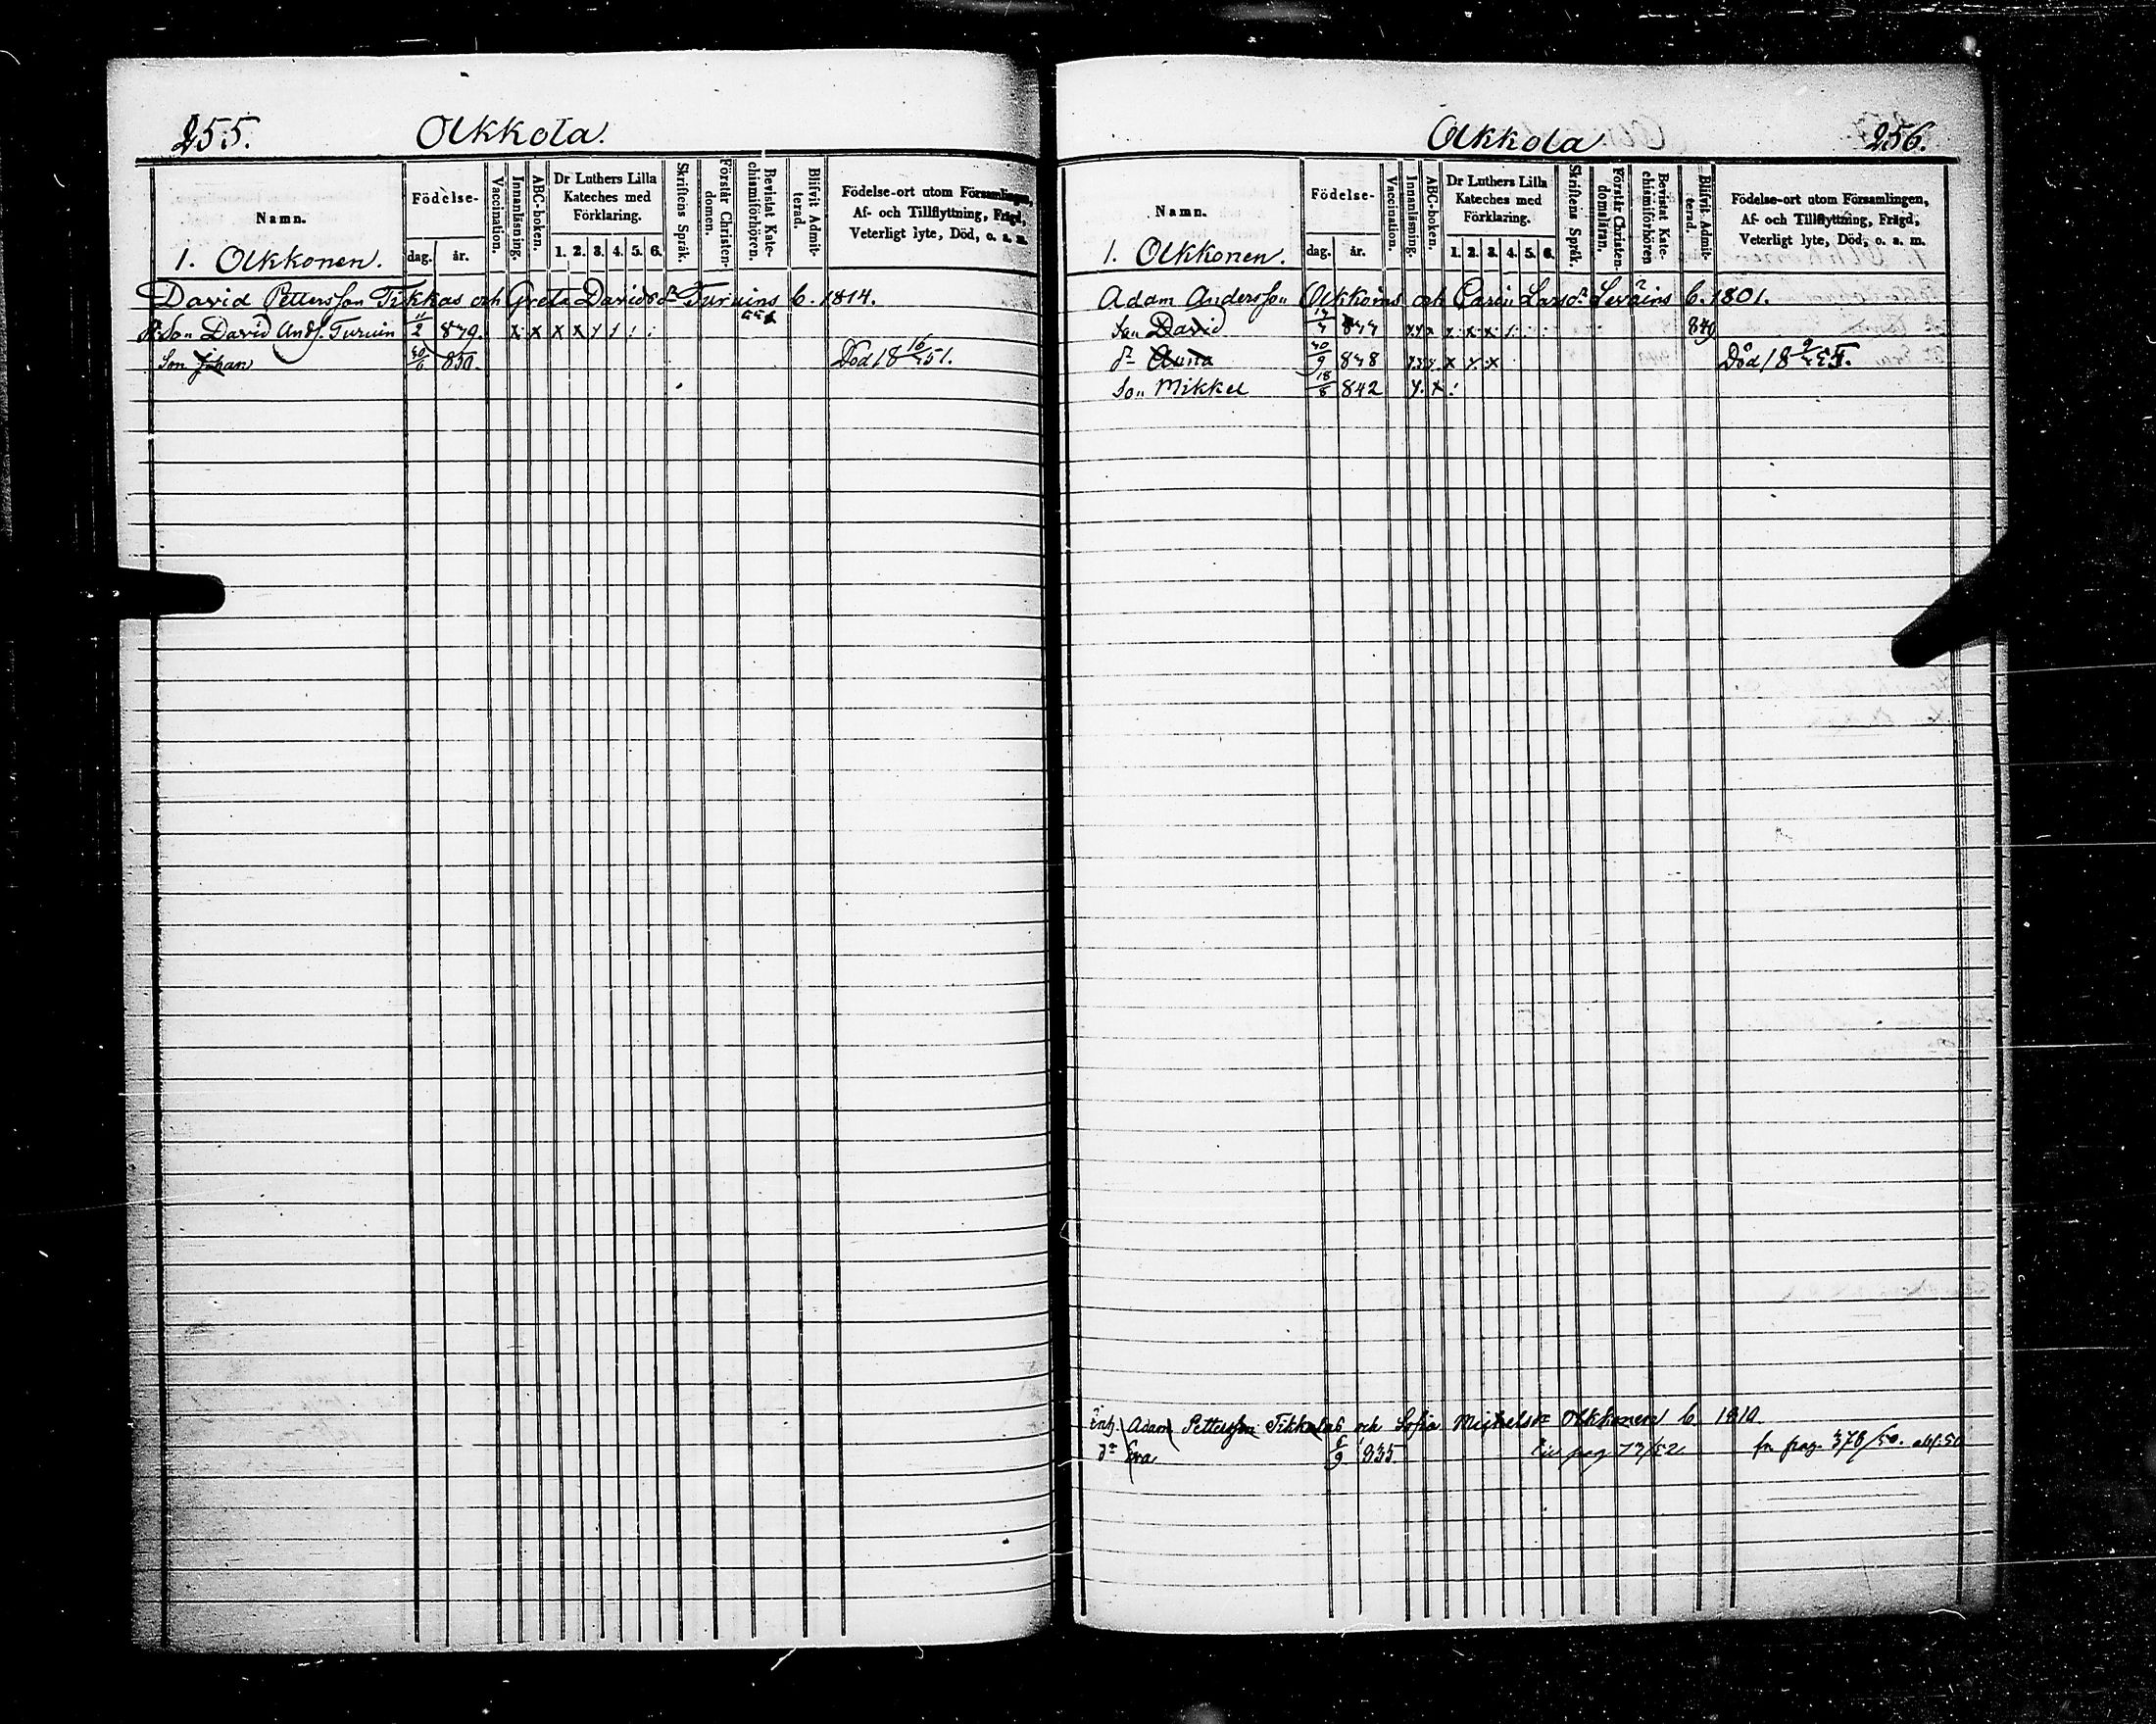 255.
Olkkola.
Namn.
1. Olkkonen.
Födelse-
dag.
år.
Vaccination.
Innanläsning.
ABC-boken.
Dr Luthers Lilla
Kateches med
Förklaring.
1. 2. 3. 4. 5. 6.
Skriftens Språk.
Förstår Christen-
domen.
Bevistat Kate-
chismiförhören.
Blifvit Admit-
terad.
Födelse-ort utom Församlingen,
Af- och Tillflyttning, Frägd,
Veterligt lyte, Död, o. s. m.
David Pettersson Tikkas och Greta Davidsdr Turuins b. 1814.
Son David Andf. Turuin 11/2 839. x x x x
Son Johan 30/6 850. Död 18 16/ 51.
Olkkola
256.
Namn.
1. Olkkonen.
Födelse-
dag.
år.
Vaccination.
Innanläsning.
ABC-boken.
Dr Luthers Lilla
Kateches med
Förklaring.
1. 2. 3. 4. 5. 6.
Skriftens Språk.
Förstår Christen-
domsläran.
Bevistat Kate-
chismiförhören
Blifvit Admit-
terad.
Födelse-ort utom Församlingen,
Af- och Tillflyttning, Frägd,
Veterligt lyte, Död, o. s. m.
Adam Andersson Olkkoins och Carin Larsdr b. 1801.
Son David
dr Anna 30/9 838 x x x Död 18
Son Mikkel 18/8 842 x
Adam Pettersson och Sofia Michelsdr Olkkonen b. 1810
dr Eva 835 pag 73/52 fr pag 378/50.